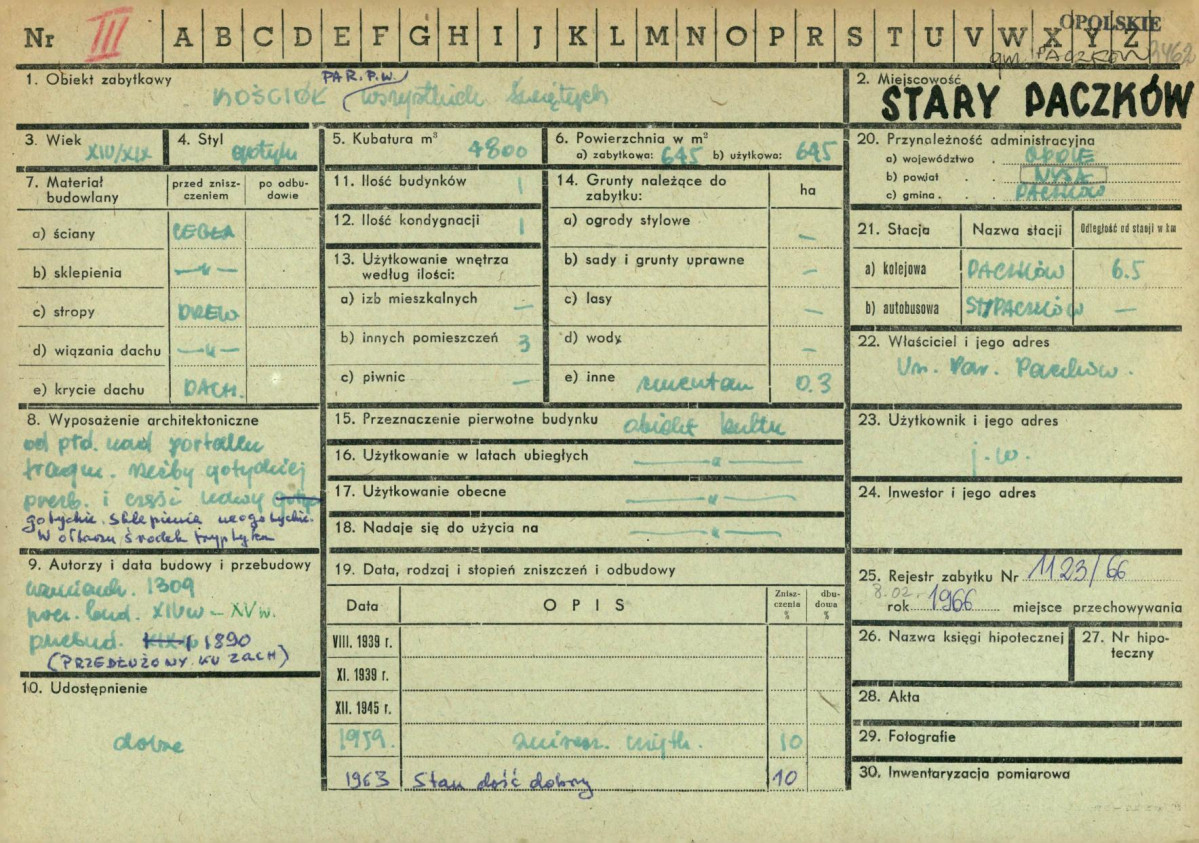 Nr III A B C D E F G H I J K L M N O P R S T U V W X Y Z
OPOLSKIE
gm. PACZKÓW 3462
1. Obiekt zabytkowy
PAR. P.W.
KOŚCIÓŁ Wszystkich Świętych
2. Miejscowość
STARY PACZKÓW
3. Wiek
XIV/XIX
4. Styl
gotyk
5. Kubatura m³
4800
6. Powierzchnia w m²
a) zabytkowa: 645 b) użytkowa: 645
7. Materiał budowlany
przed zniszczeniem
po odbudowie
a) ściany CEGŁA
b) sklepienia —"—
c) stropy DREW
d) wiązania dachu —"—
e) krycie dachu DACH.
8. Wyposażenie architektoniczne
od płd. nad portalem
fragm. rzeźby gotyckiej
prezb. i część nawy
gotyckie. Sklepienia neogotyckie.
W ołtarzu środek tryptyku
9. Autorzy i data budowy i przebudowy
1309
XIVw – XVw.
przebud. XIX p 1890
(PRZEDŁUŻONY KU ZACH)
10. Udostępnienie
dobre
11. Ilość budynków 1
12. Ilość kondygnacji 1
13. Użytkowanie wnętrza
według ilości:
a) izb mieszkalnych —
b) innych pomieszczeń 3
c) piwnic —
14. Grunty należące do
zabytku:
ha
a) ogrody stylowe —
b) sady i grunty uprawne —
c) lasy —
d) wody —
e) inne cmentarz 0.3
15. Przeznaczenie pierwotne budynku obiekt kultu
16. Użytkowanie w latach ubiegłych —"—
17. Użytkowanie obecne —"—
18. Nadaje się do użycia na —"—
19. Data, rodzaj i stopień zniszczeń i odbudowy
Data OPIS Zniszczenia % dbudowa %
VIII. 1939 r.
XI. 1939 r.
XII. 1945 r.
1959. 10
1963 Stan dość dobry 10
20. Przynależność administracyjna
a) województwo . OPOLE
b) powiat . . NYSA
c) gmina . . PACZKÓW
21. Stacja Nazwa stacji Odległość od stacji w km
a) kolejowa PACZKÓW 6.5
b) autobusowa ST/PACZKÓW —
22. Właściciel i jego adres
Par. Paczków.
23. Użytkownik i jego adres
j.w.
24. Inwestor i jego adres
25. Rejestr zabytku Nr 1123/66
8.02.
rok 1966 miejsce przechowywania
26. Nazwa księgi hipotecznej
27. Nr hipoteczny
28. Akta
29. Fotografie
30. Inwentaryzacja pomiarowa